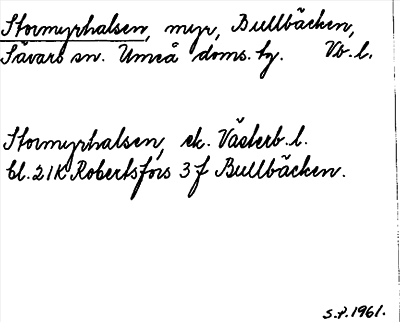 Stormyrhalsen, myr, Bullbäcken,
Sävars sn. Umeå doms. tg. Vb. l.
Stormyrhalsen, ek. Västerb. l.
bl. 21K Robertsfors 3 f Bullbäcken.
S.P. 1961.